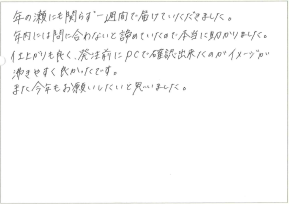 年の瀬にも関らず一週間で届けていただきました。
年内には間に合わないと諦めていたので本当に助かりました。
仕上がりも良く、発注前にPCで確認出来たのがイメージが
沸きやすく良かったです。
また今年もお願いしたいと思いました。